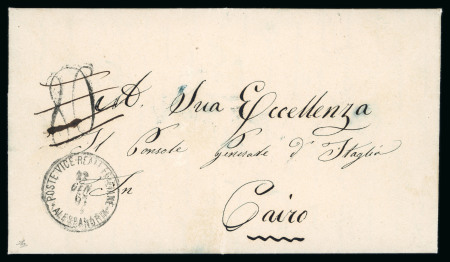 20
Sua Eccellenza
Il Console Generale d'Italia
In
Cairo
POSTE VICE-REALI EGIZIANE
22
GEN
67
ALESSANDRIA